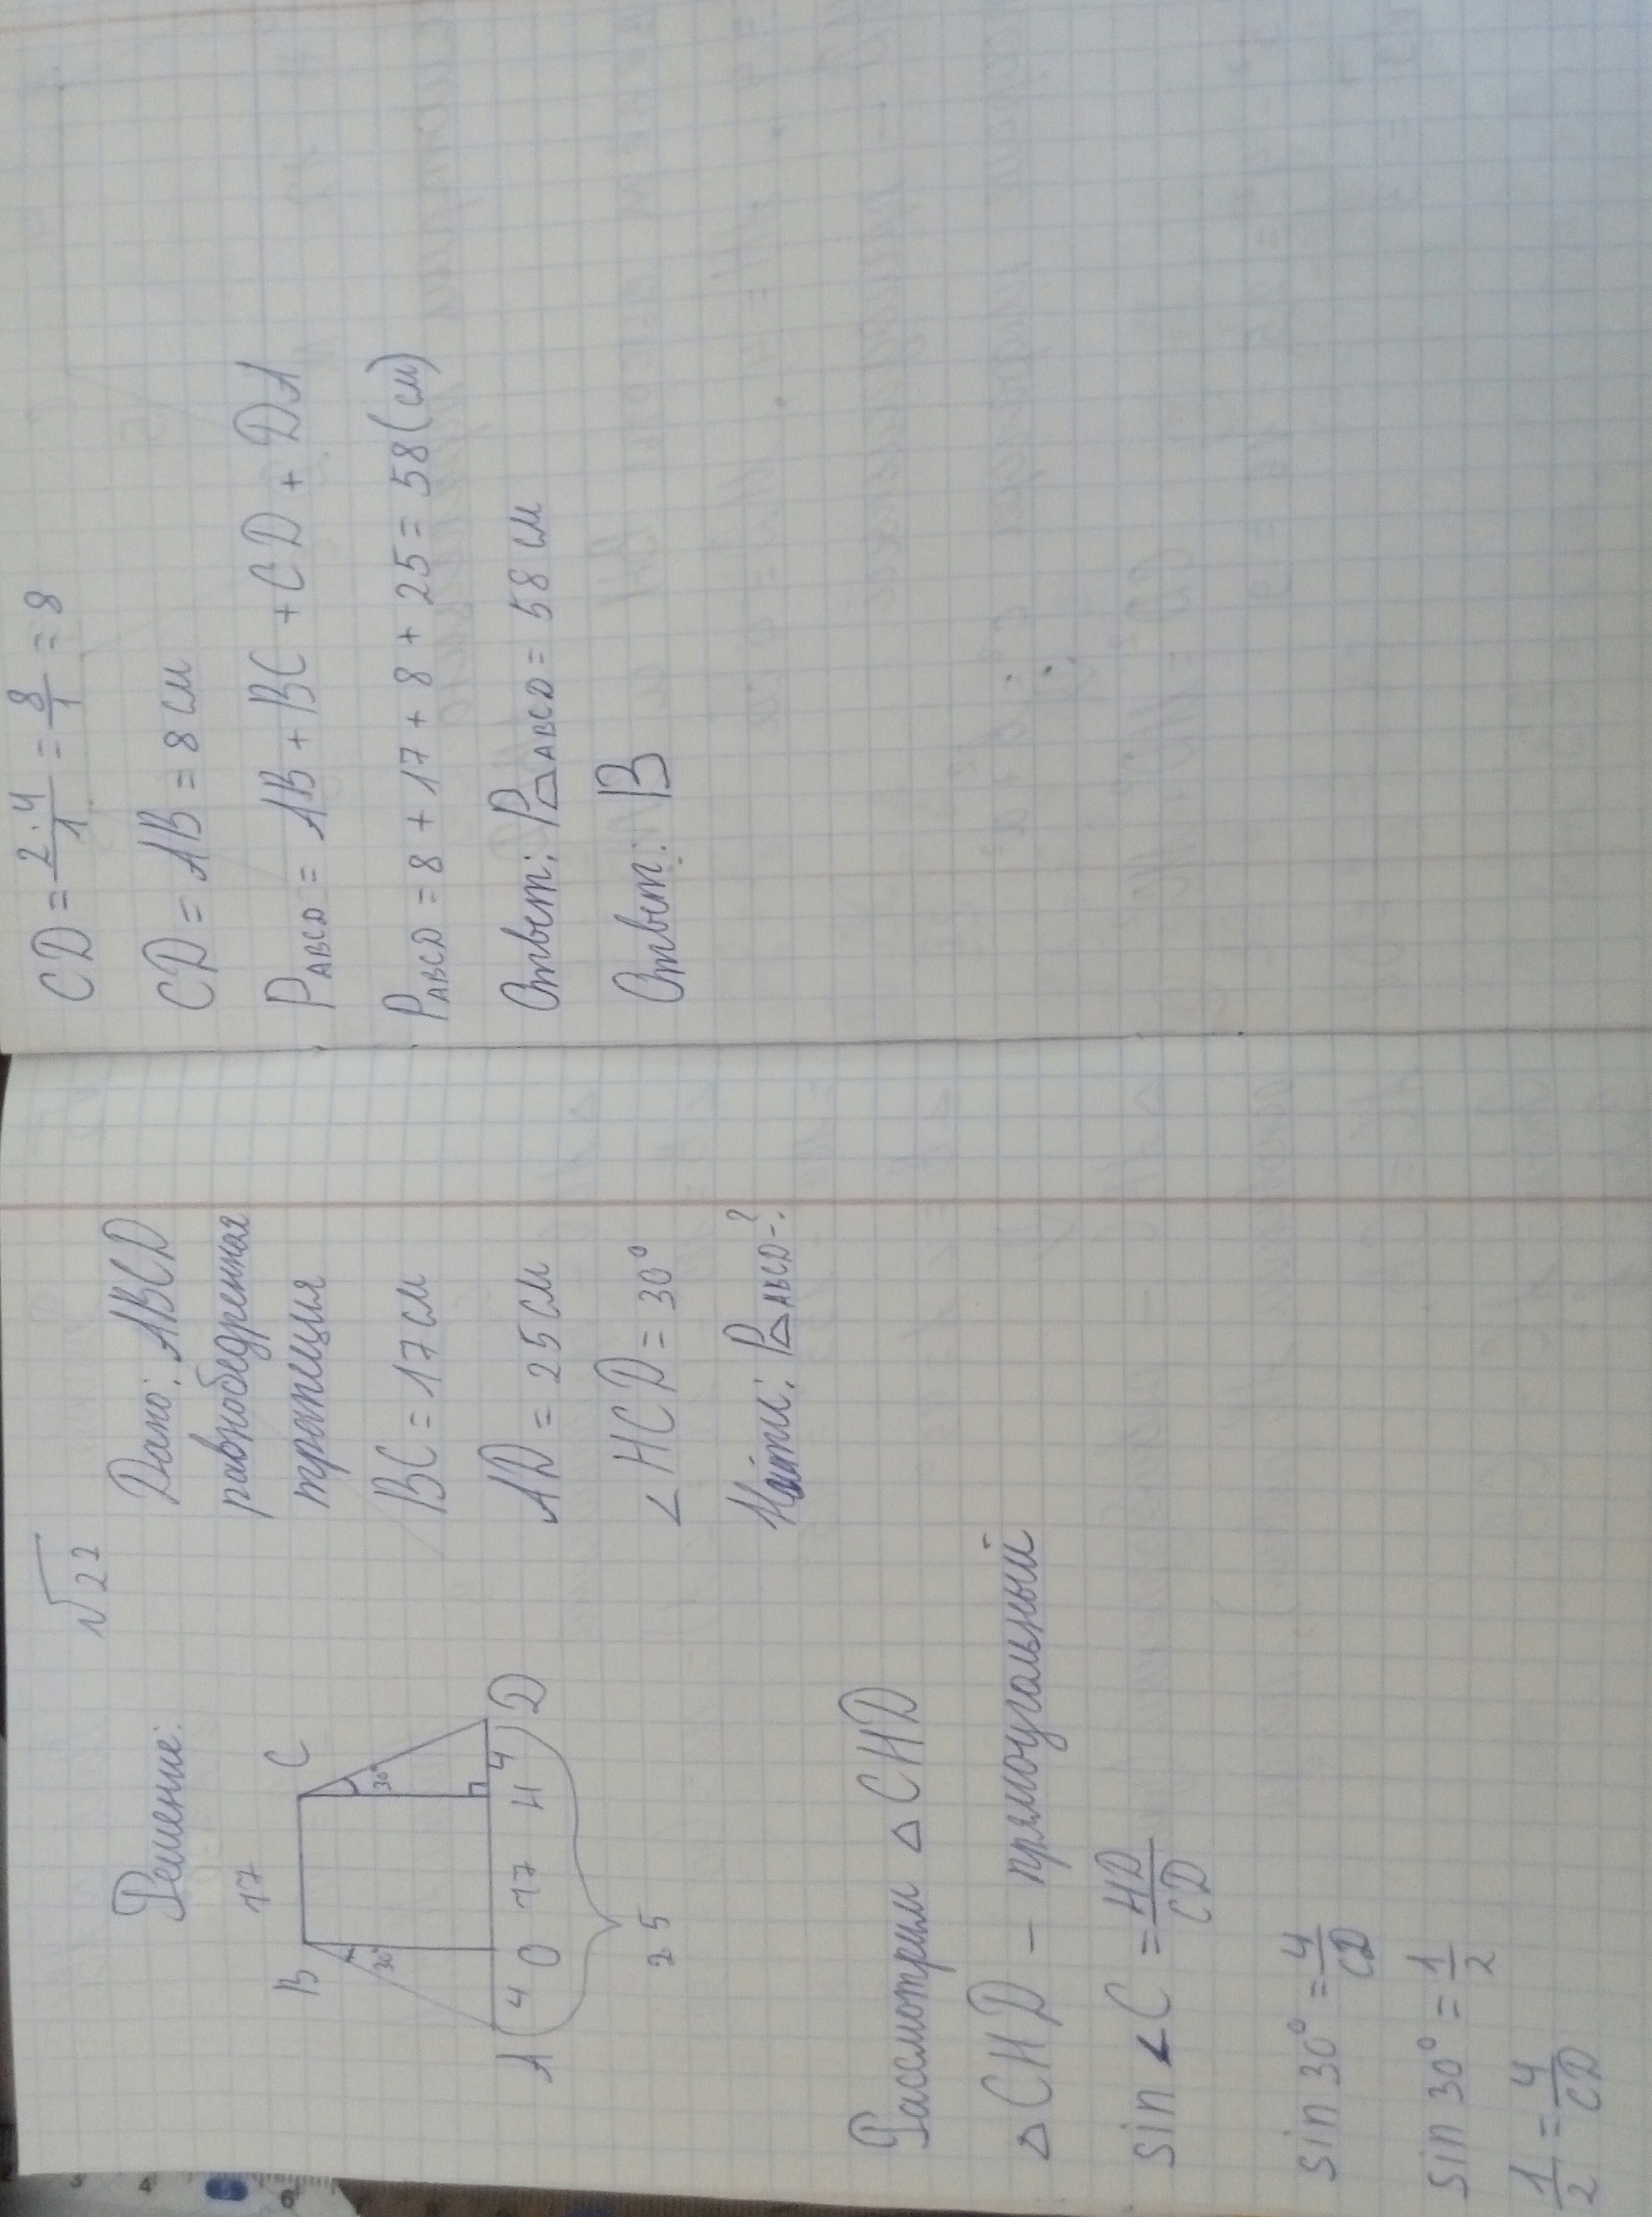 √22
Решение:
Дано: ABCD
равнобедренная
трапеция
BC = 17 см
AD = 25 см
∠ HCD = 30°
Найти: P△ABCD-?
17
B C
30° 30°
4 17 4
A O H D
25
Рассмотрим △ CHD
△ CHD – прямоугальный
sin ∠C = HD/CD
sin 30° = 4/CD
sin 30° = 1/2
1/2 = 4/CD
CD = 2·4/1 = 8/1 = 8
CD = AB = 8 см
PABCD = AB + BC + CD + DA
PABCD = 8 + 17 + 8 + 25 = 58 (см)
Ответ: P△ABCD = 58 см
Ответ: B